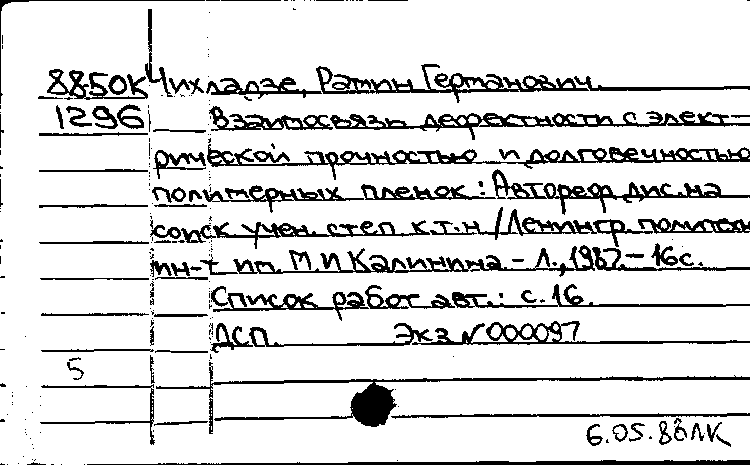 8850К Чихладзе, Рамин Германович.
1296 Взаимосвязь дефектности с элект-
рической прочностью и долговечностью
полимерных пленок: Автореф. дис. на
соиск учен. степ к.т.н /Ленингр. политехн
ин-т им. М.И Калинина. - Л., 1987. - 16с.
Список работ авт.: с. 16.
ДСП. Экз N 000097
5
6.05.88 ЛК